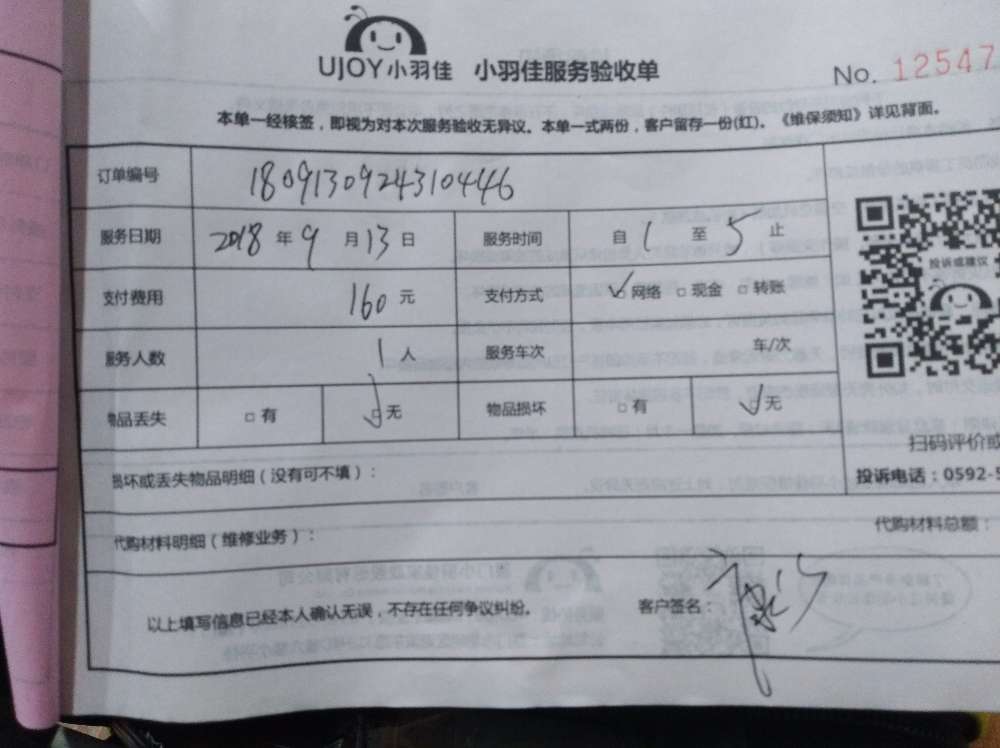 UJOY小羽佳 小羽佳服务验收单
No. 12547
本单一经核签，即视为对本次服务验收无异议。本单一式两份，客户留存一份(红)。《维保须知》详见背面。
订单编号 1809130924310446
服务日期 2018年9月13日 服务时间 自1至5止
支付费用 160元 支付方式 ☑网络 □现金 □转账
服务人数 1人 服务车次 车/次
物品丢失 □有 ☑无 物品损坏 □有 ☑无
损坏或丢失物品明细（没有可不填）：
代购材料明细（维修业务）： 代购材料总额：
以上填写信息已经本人确认无误，不存在任何争议纠纷。 客户签名：
投诉或建议
扫码评价或
投诉电话：0592-5